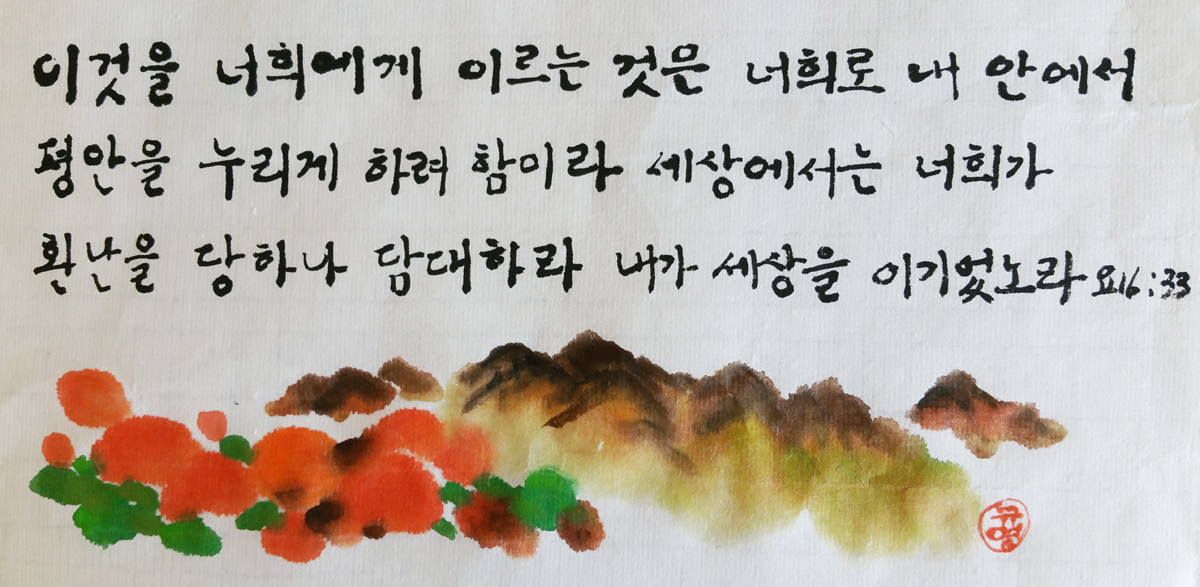 이것을 너희에게 이르는 것은 너희로 내 안에서
평안을 누리게 하려 함이라 세상에서는 너희가
환난을 당하나 담대하라 내가 세상을 이기었노라 요16:33